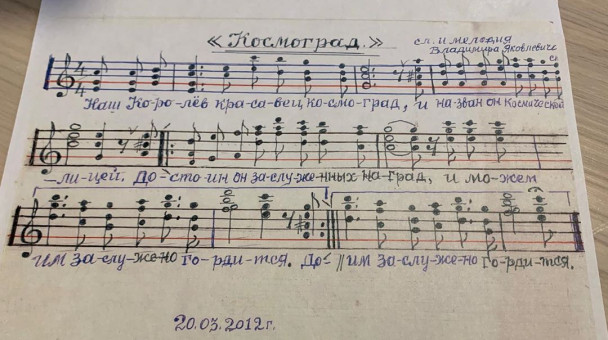 «Космоград.»
сл. и мелодия
Владимира Яковлевича
Наш Ко-ро-лёв кра-са-вец, ко-смо-град, и на-зван он Космической
-ли-цей. До-сто-ин он за-слу-жен-ных на-град, и мо-жем
им за-слу-же-но го-рди-тся. До- // им за-слу-же-но го-рди-тся.
20.03.2012 г.